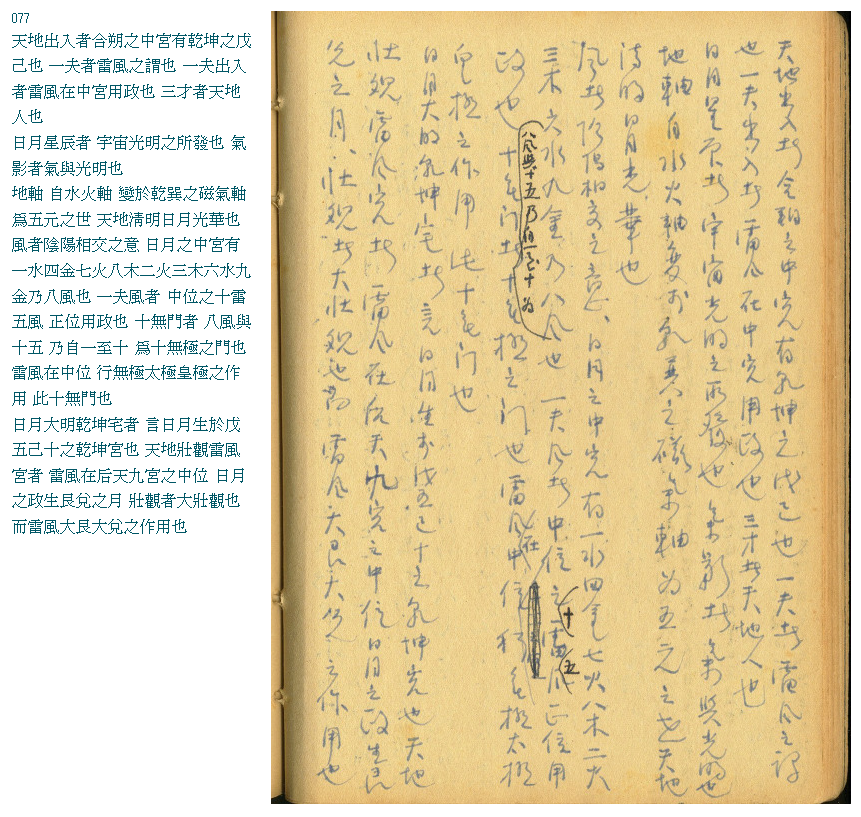 077
天地出入者合朔之中宮有乾坤之戊
己也 一夫者雷風之謂也 一夫出入
者雷風在中宮用政也 三才者天地
人也
日月星辰者 宇宙光明之所發也 氣
影者氣與光明也
地軸 自水火軸 變於乾巽之磁氣軸
爲五元之世 天地淸明日月光華也
風者陰陽相交之意 日月之中宮有
一水四金七火八木二火三木六水九
金乃八風也 一夫風者 中位之十雷
五風 正位用政也 十無門者 八風與
十五 乃自一至十 爲十無極之門也
雷風在中位 行無極太極皇極之作
用 此十無門也
日月大明乾坤宅者 言日月生於戊
五己十之乾坤宮也 天地壯觀雷風
宮者 雷風在后天九宮之中位 日月
之政生艮兌之月 壯觀者大壯觀也
而雷風大艮大兌之作用也
天地出入者合朔之中宮有乾坤之戊己也 一夫者雷風之謂
也 一夫出入者雷風在中宮用政也 三才者天地人也
日月星辰者 宇宙光明之所發也 氣影者氣與光明也
地軸自水火軸變於乾巽之磁氣軸為五元之世天地
淸明日月光華也
風者陰陽相交之意 日月之中宮有一水四金七火八木二火
三木六水九金乃八風也 一夫風者中位之十雷五風正位用
八風與十五乃自一至十為
政也 十無門者十無極之門也 雷風在中位行無極太極
皇極之作用 此十無門也
日月大明乾坤宅者 言日月生於戊五己十之乾坤宮也 天地
壯觀雷風宮者 雷風在后天九宮之中位日月之政生艮
兌之月 壯觀者大壯觀也而雷風大艮大兌之作用也